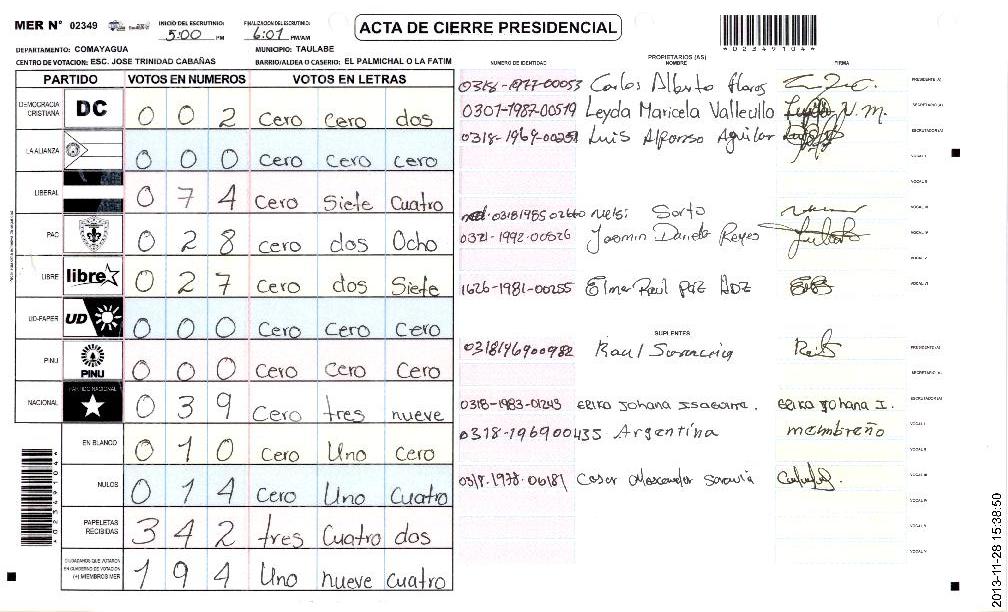 MER N° 02349 INICIO DEL ESCRUTINIO: 5:00 PM FINALIZACION DEL ESCRUTINIO: 6:01 PM/AM ACTA DE CIERRE PRESIDENCIAL
DEPARTAMENTO: COMAYAGUA MUNICIPIO: TAULABE
CENTRO DE VOTACION: ESC. JOSE TRINIDAD CABAÑAS BARRIO/ALDEA O CASERIO: EL PALMICHAL O LA FATIM
PARTIDO VOTOS EN NUMEROS VOTOS EN LETRAS
DEMOCRACIA CRISTIANA DC 0 0 2 Cero Cero dos
LA ALIANZA 0 0 0 Cero Cero Cero
LIBERAL 0 7 4 Cero Siete Cuatro
PAC 0 2 8 cero dos Ocho
LIBRE libre 0 2 7 Cero dos Siete
UD-FAPER UD 0 0 0 Cero Cero Cero
PINU PINU 0 0 0 Cero Cero Cero
NACIONAL PARTIDO NACIONAL 0 3 9 Cero tres nueve
EN BLANCO 0 1 0 Cero Uno Cero
NULOS 0 1 4 Cero Uno Cuatro
PAPELETAS RECIBIDAS 3 4 2 tres Cuatro dos
CIUDADANOS QUE VOTARON EN CUADERNO DE VOTACION (+) MIEMBROS MER 1 9 4 Uno nueve cuatro
PROPIETARIOS (AS)
NUMERO DE IDENTIDAD NOMBRE FIRMA
0318-1977-00053 Carlos Alberto Flores PRESIDENTE (A)
0307-1987-00519 Leyda Maricela Vallecillo V.M. SECRETARIO (A)
0318-1969-00251 Luis Alfonso Aguilar ESCRUTADOR (A)
VOCAL I
VOCAL II
0318198502660 Nelsi Sorto VOCAL III
0321-1992-00526 Jasmin Daniela Reyes VOCAL IV
VOCAL V
1626-1981-00255 Elmer Raul Paz HDZ VOCAL VI
SUPLENTES
0318196900982 Raul PRESIDENTE (A)
SECRETARIO (A)
0318-1983-01243 Erika Johana Isaguirre. Erika Johana I. ESCRUTADOR (A)
0318-196900435 Argentina membreño VOCAL I
VOCAL II
0318-1978-00181 Cesar VOCAL III
VOCAL IV
VOCAL V
VOCAL VI
2013-11-28 15:38:50